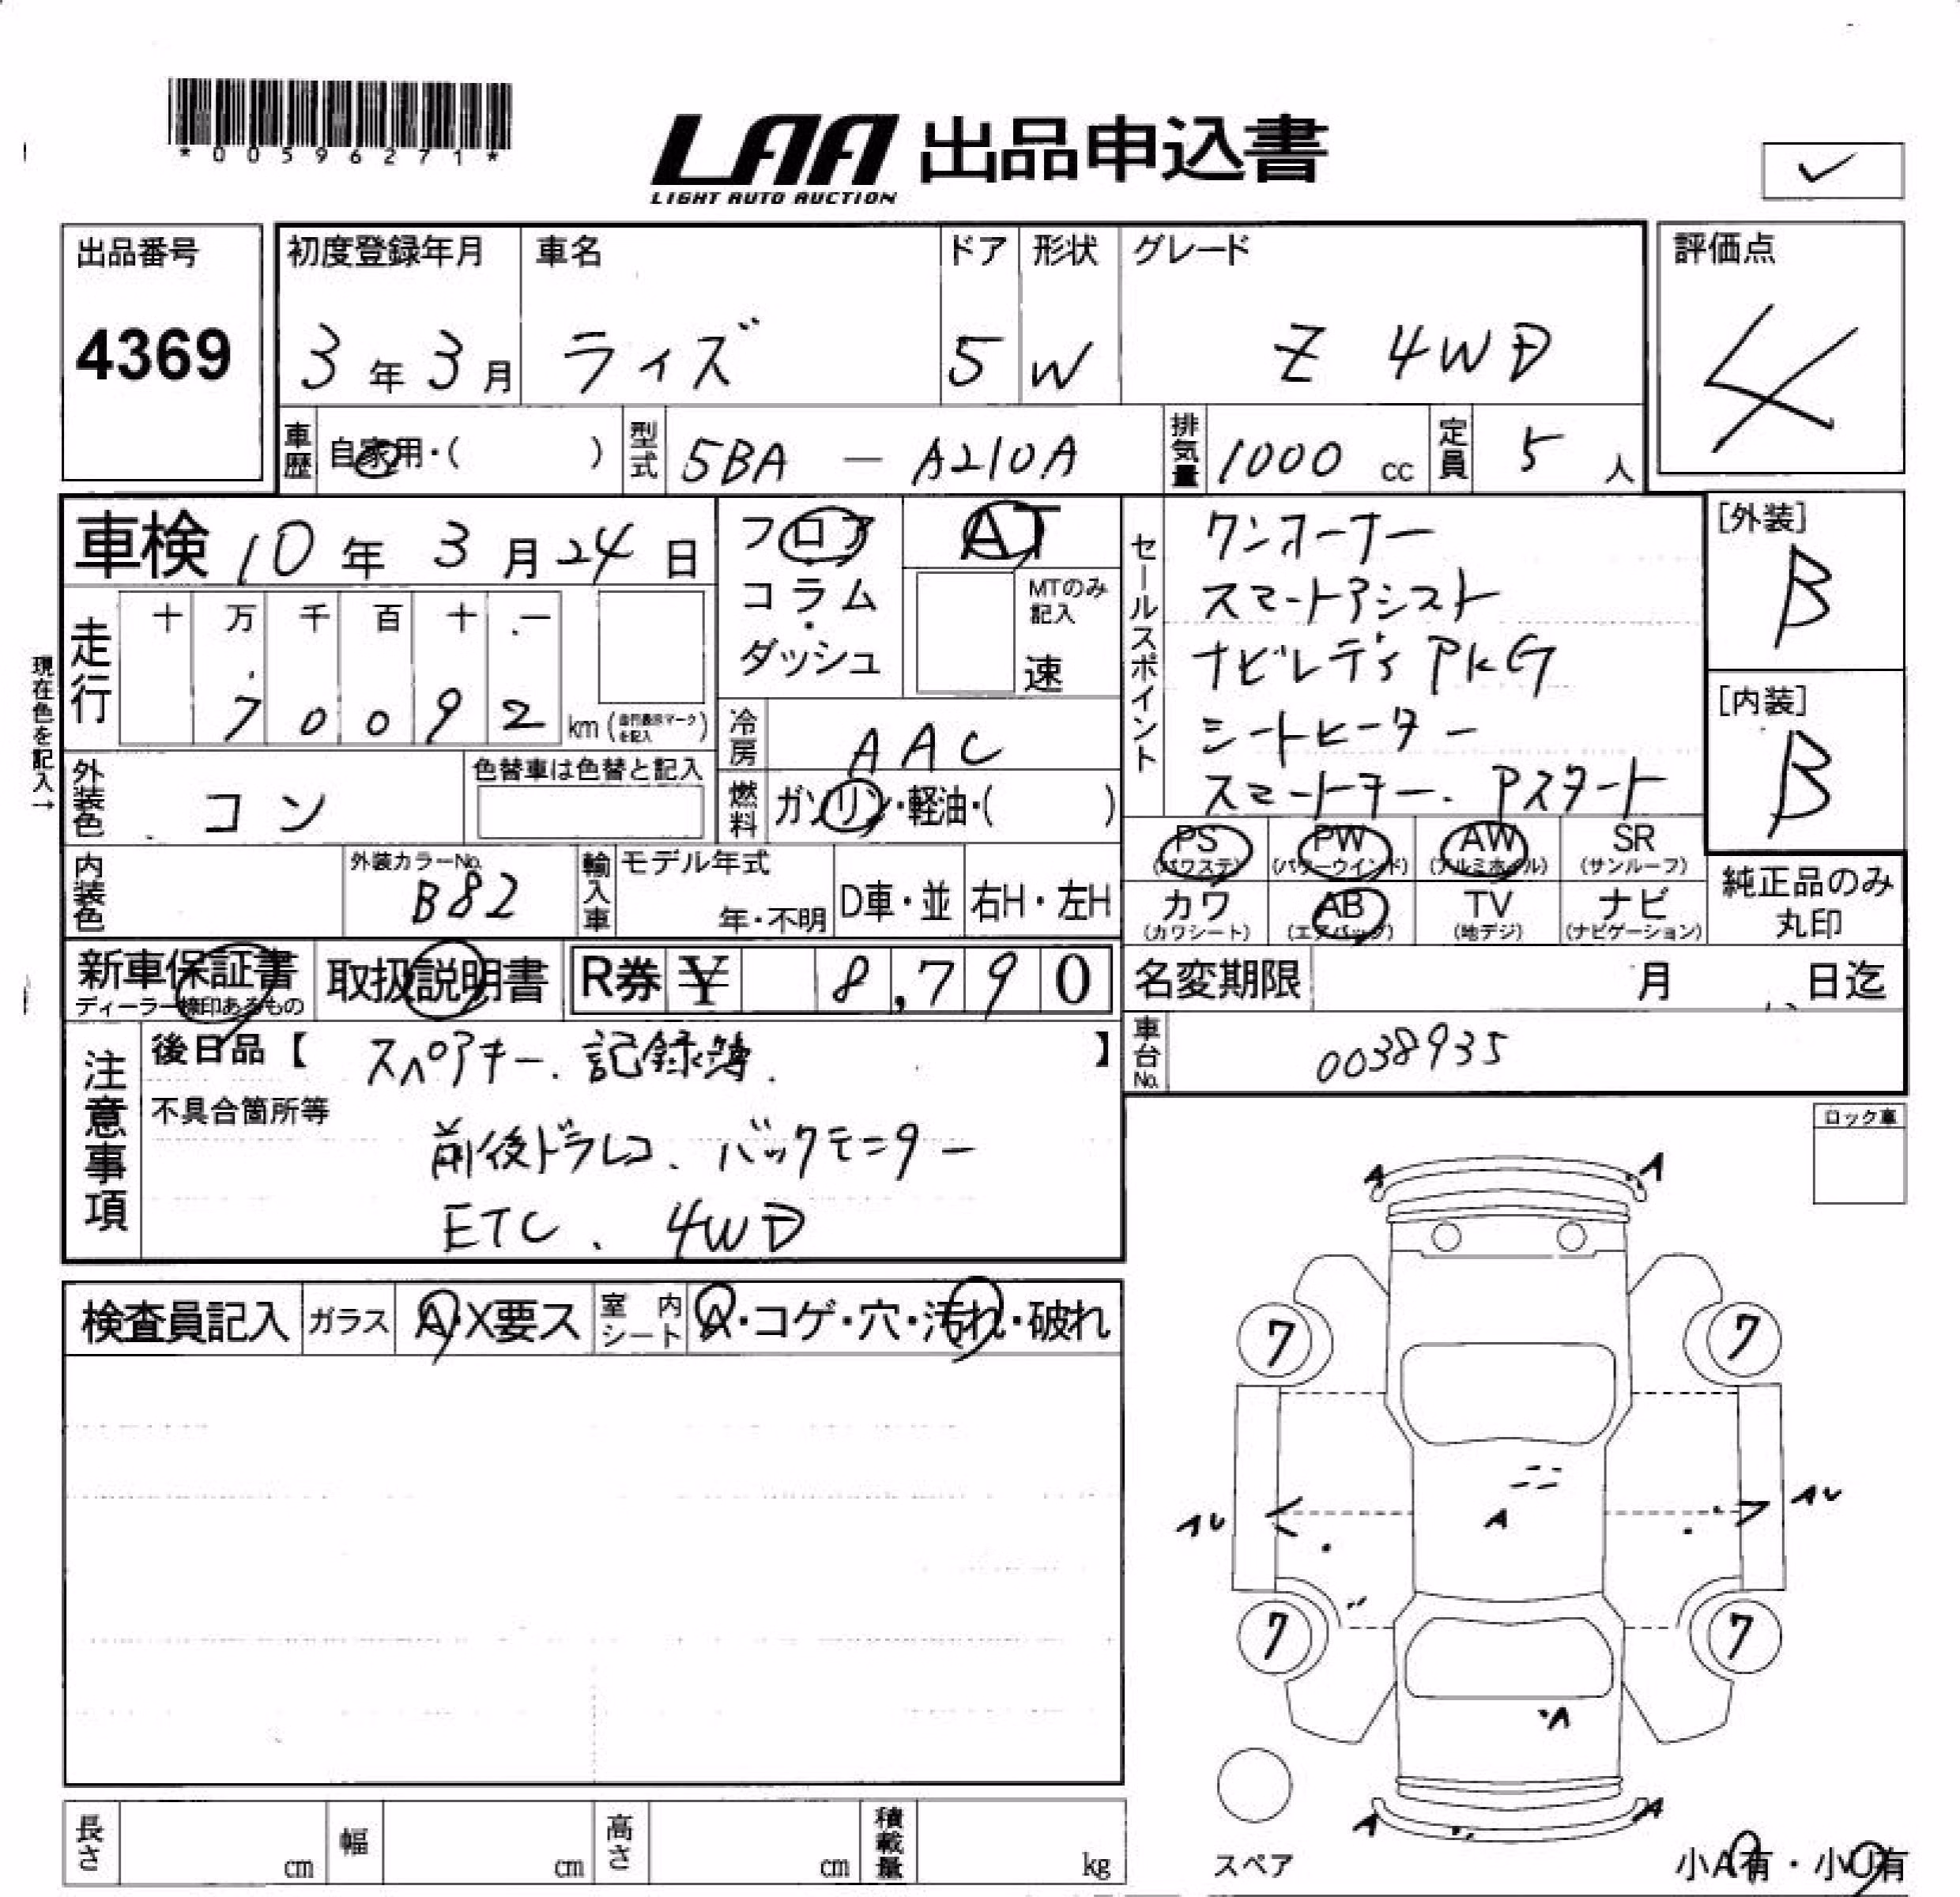 *00596271*
LAA 出品申込書
LIGHT AUTO AUCTION
出品番号
4369
初度登録年月
3年3月
車名
ライズ
ドア
5
形状
W
グレード
Z 4WD
評価点
4
車歴
自家用・( )
型式
5BA - A210A
排気量
1000 cc
定員
5 人
車検 10年 3月 24日
フロア
コラム
・
ダッシュ
AT
MTのみ
記入
速
セールスポイント
ワンオーナー
スマートアシスト
ナビレディ PKG
シートヒーター
スマートキー. Pスタート
[外装]
B
[内装]
B
現在色を記入→
走行
十 万 千 百 十 一
7 0 0 9 2 km
冷房
AAC
外装色
コン
色替車は色替と記入
燃料
ガソリン・軽油・( )
PS
(パワステ)
PW
(パワーウインド)
AW
(アルミホイル)
SR
(サンルーフ)
カワ
(カワシート)
AB
(エアバッグ)
TV
(地デジ)
ナビ
(ナビゲーション)
純正品のみ
丸印
内装色
外装カラーNo.
B82
輸入車
モデル年式
年・不明
D車・並
右H・左H
新車保証書
ディーラー検印あるもの
取扱説明書
R券 ¥ 8,790
名変期限 月 日迄
車台No.
0038935
注意事項
後日品【 スペアキー. 記録簿. 】
不具合箇所等
前後ドラレコ、バックモニター
ETC、4WD
ロック車
検査員記入
ガラス
A・X要ス
室内シート
A・コゲ・穴・汚れ・破れ
A A
7 7
A
7 7
A
A A
スペア
小A有・小U有
長さ cm
幅 cm
高さ cm
積載量 kg